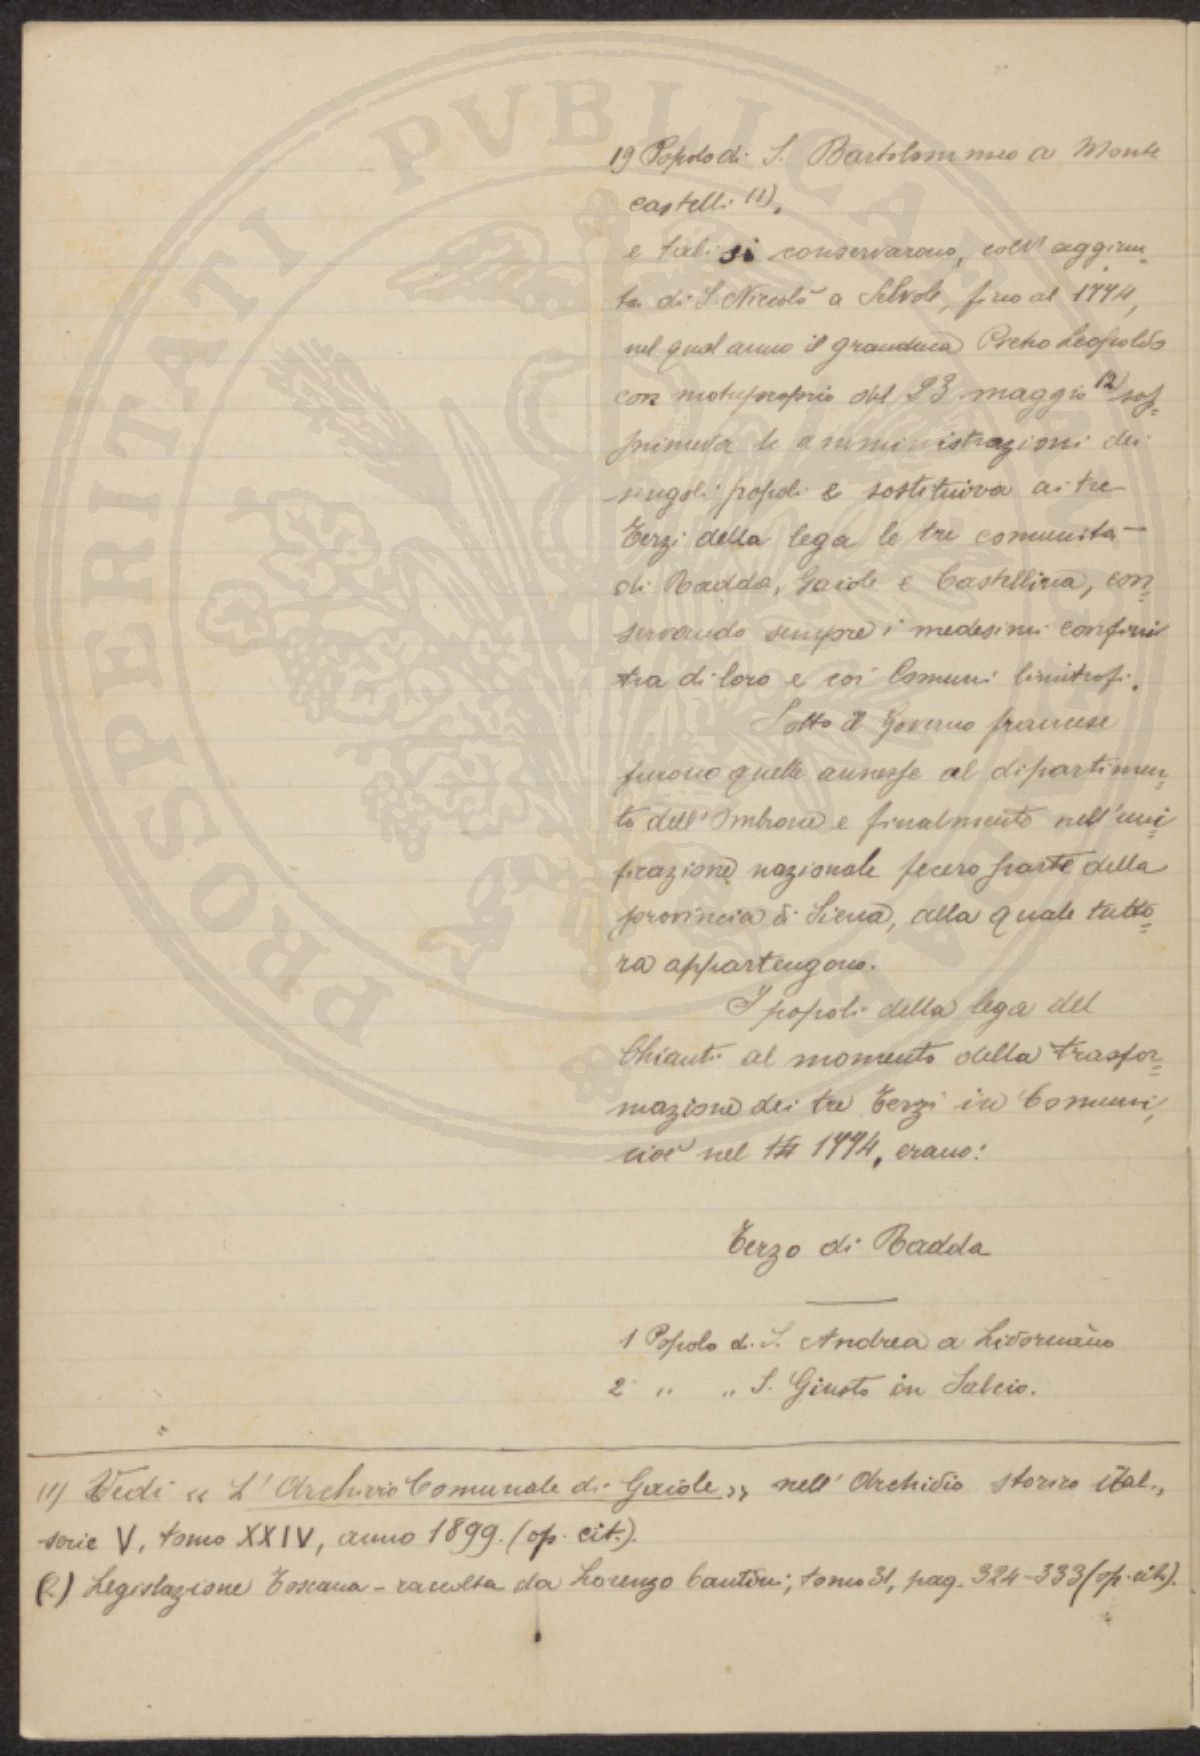 19 Popolo di S. Bartolommeo a Monte
castelli (1).
e tali si conservarono, coll' aggiun=
ta di S. Niccolò a Selvole, fino al 1774,
nel qual anno il granduca Pietro Leopoldo
con motuproprio del 23 maggio (2) sop=
primeva le amministrazioni dei
singoli popoli e sostituiva ai tre
Terzi della lega le tre comunità
di Radda, Gaiole e Castellina, con=
servando sempre i medesimi confini
tra di loro e coi Comuni limitrofi.
Sotto il Governo francese
furono quelle annesse al dipartimen=
to dell'Ombrone e finalmente nell'uni=
ficazione nazionale fecero parte della
provincia di Siena, alla quale tutto=
ra appartengono.
I popoli della lega del
Chianti al momento della trasfor=
mazione dei tre Terzi in Comuni,
cioè nel 1774, erano:
Terzo di Radda
1 Popolo di S. Andrea a Livornano
2 " " S. Giusto in Salcio.
(1) Vedi « L'Archivio Comunale di Gaiole » nell'Archivio storico ital.,
serie V, tomo XXIV, anno 1899. (op. cit.).
(2.) Legislazione Toscana - raccolta da Lorenzo Cantini, tomo 31, pag. 324-333 (op. cit.).
PROSPERITATI PVBLICAE